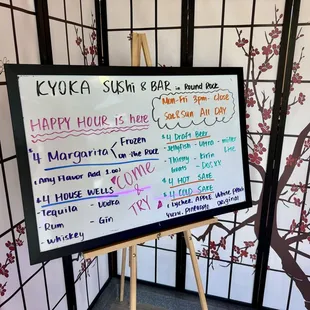 KYOKA SUSHI & BAR in Round Rock
HAPPY HOUR is here
Mon-Fri 3pm-close
Sat&Sun All DAY
4 Margarita / Frozen
on the Rock
(Any Flavor Add 1.00)
$4 HOUSE WELLS
-Tequila - Vodka
Rum - Gin
-Whiskey
COME
&
TRY
$4 Draft Beer
Thirsty - Kirin
Dos XX
$4 HOT SAKE
$4 COLD SAKE
Lychee, Apple, White Peach
Original